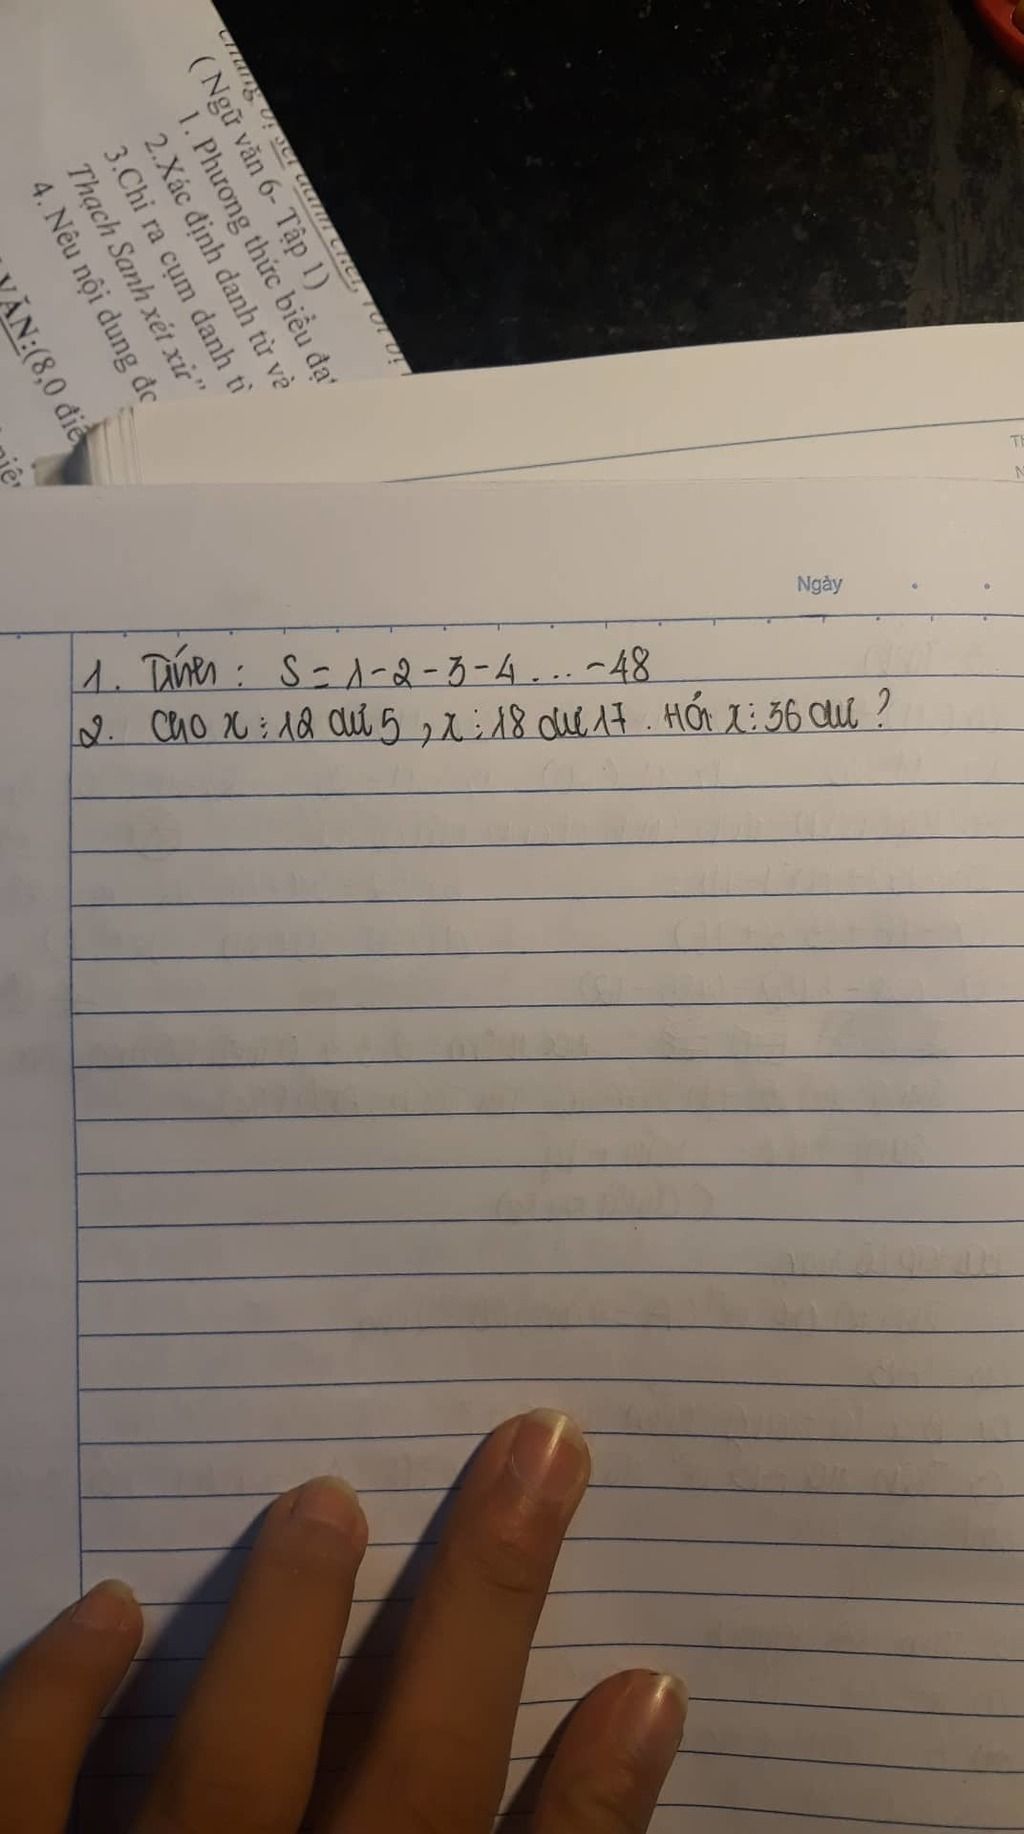 ( Ngữ văn 6- Tập 1)
1. Phương thức biểu đạ
2.Xác định danh từ và
3.Chỉ ra cụm danh t
Thạch Sanh xét xử"
4. Nêu nội dung đo
VĂN:(8,0 điể
Ngày
1. Tính: S = 1-2-3-4 ... -48
2. Cho x : 12 dư 5 , x : 18 dư 17 . Hỏi x : 36 dư ?